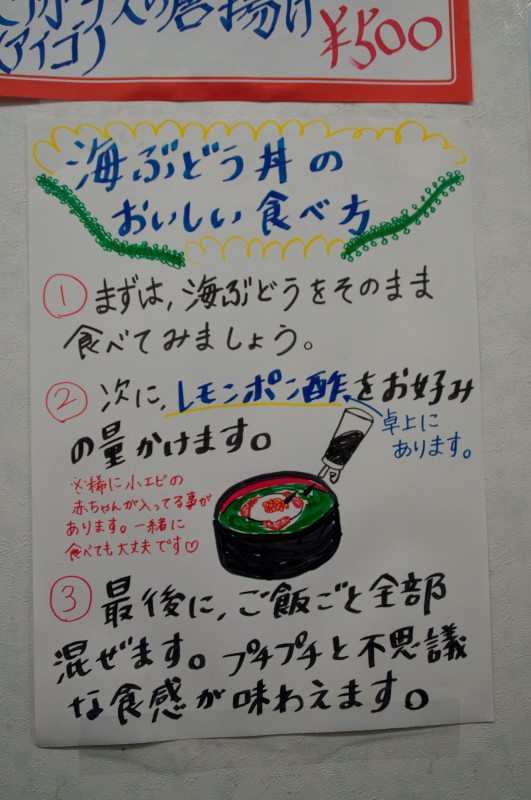 の唐揚げ
(アイゴ) ¥500
海ぶどう丼の
おいしい食べ方
① まずは、海ぶどうをそのまま
食べてみましょう。
② 次に、レモンポン酢をお好み
の量かけます。
卓上に
あります。
※稀に小エビの
赤ちゃんが入ってる事が
あります。一緒に
食べても大丈夫です♡
③ 最後に、ご飯ごと全部
混ぜます。プチプチと不思議
な食感が味わえます。